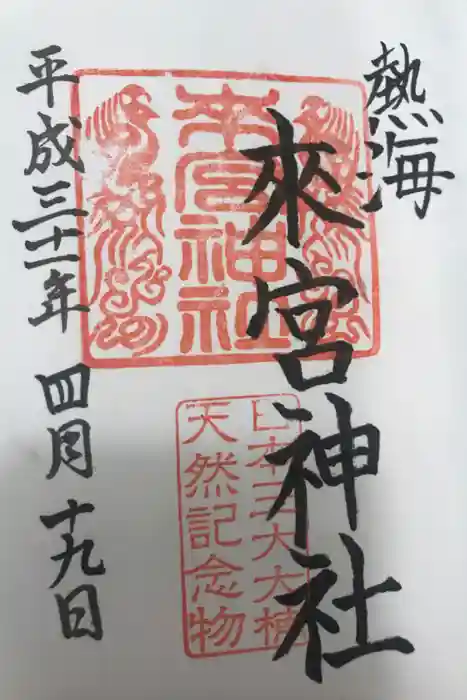 熱海
來宮神社
來宮神社
日本三大大楠
天然記念物
平成三十一年四月十九日